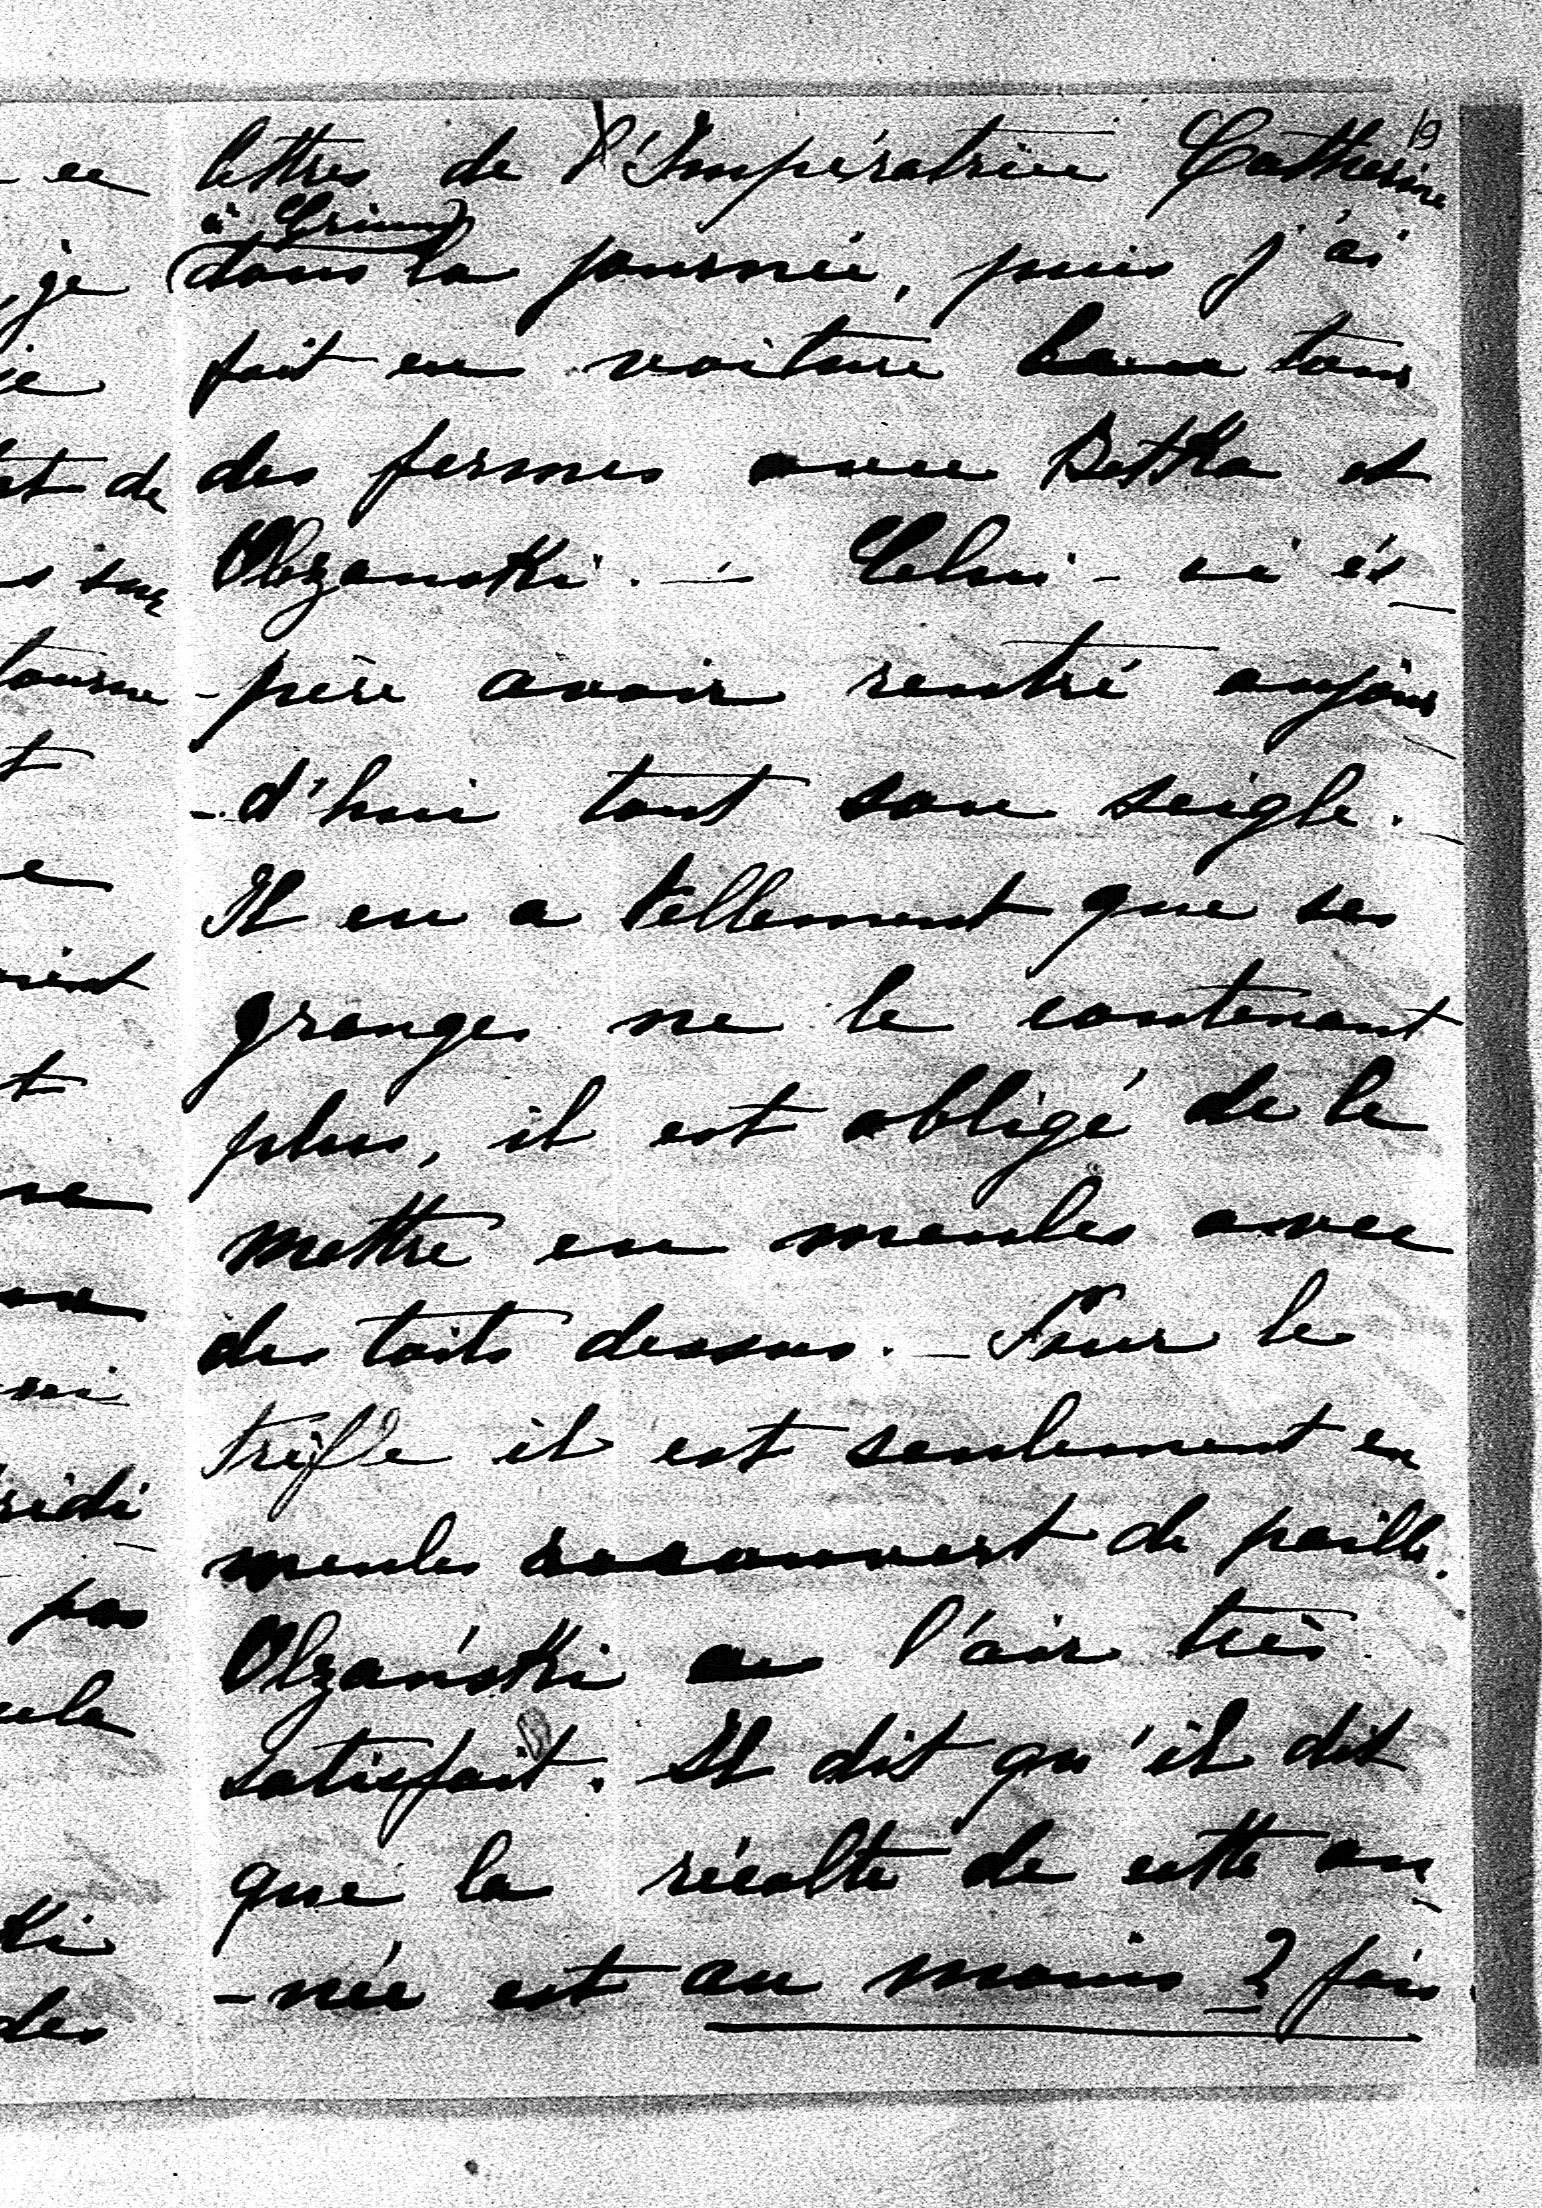 19
lettres de l'Impératrice Catherine
à Grimm
(dans la journée, puis j'ai
fait en voiture le tour
des fermes avec Betka et
Olszanski. — Celui-ci es
-père avoir rentré aujour
-d'hui tout son seigle.
Il en a tellement que ses
granges ne le contenant
plus, il est obligé de le
mettre en meules avec
des toits dessus. — Pour le
trèfle il est seulement en
meules recouvert de paille.
Olzański a l'air très
satisfait. Il dit qu'il dit
que la récolte de cette an
-née est au moins 2 fois